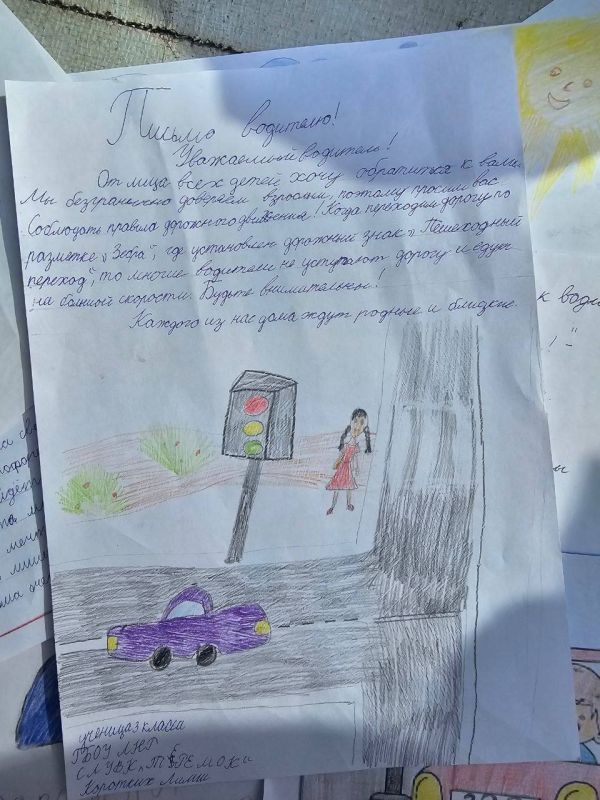 Письмо водителю!
Уважаемый водитель!
От лица всех детей хочу обратится к вам.
Мы безгранично доверяем взрослым, поэтому просим вас
Соблюдать правила дорожного движения! Когда переходим дорогу по
разметке „Зебра", где установлен дорожный знак „Пешеходный
переход", то многие водители не уступают дорогу и едут
на большой скорости. Будьте внимательны!
Каждого из нас дома ждут родные и близкие.
ученица 3 класса
ГБОУ ЛНР
СЛУВК „ТЕРЕМОК"
Коротких Лилии
к води